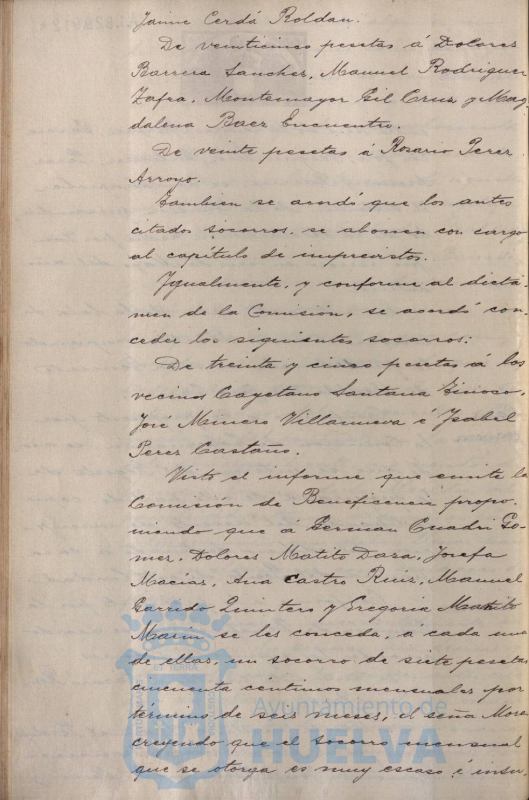 Jaime Cerdá Roldan.
De veinticinco pesetas á Dolores
Barrera Sanchez, Manuel Rodriguez
Zafra, Montemayor Gil Cruz y Mag
dalena Baez Encuentro.
De veinte pesetas á Rosario Perez
Arroyo.
Tambien se acordó que los antes
citados socorros, se abonen con cargo
al capítulo de imprevistos.
Igualmente, y conforme al dicta-
men de la Comisión, se acordó con-
ceder los siguientes socorros:
De treinta y cinco pesetas á los
vecinos Cayetano Santana Tinoco,
José Minero Villanueva é Isabel
Perez Castaño.
Visto el informe que emite la
Comisión de Beneficencia propo-
niendo que á German Cuadri Go-
mez, Dolores Matito Daza, Josefa
Macías, Ana Castro Ruiz, Manuel
Garrido Quintero y Gregoria Matito
Marin se les conceda, á cada una
de ellas, un socorro de siete pesetas
cincuenta céntimos mensuales por
término de seis meses, el señor Mora
creyendo que el socorro mensual
que se otorga es muy escaso é insu-
Ayuntamiento de
HUELVA